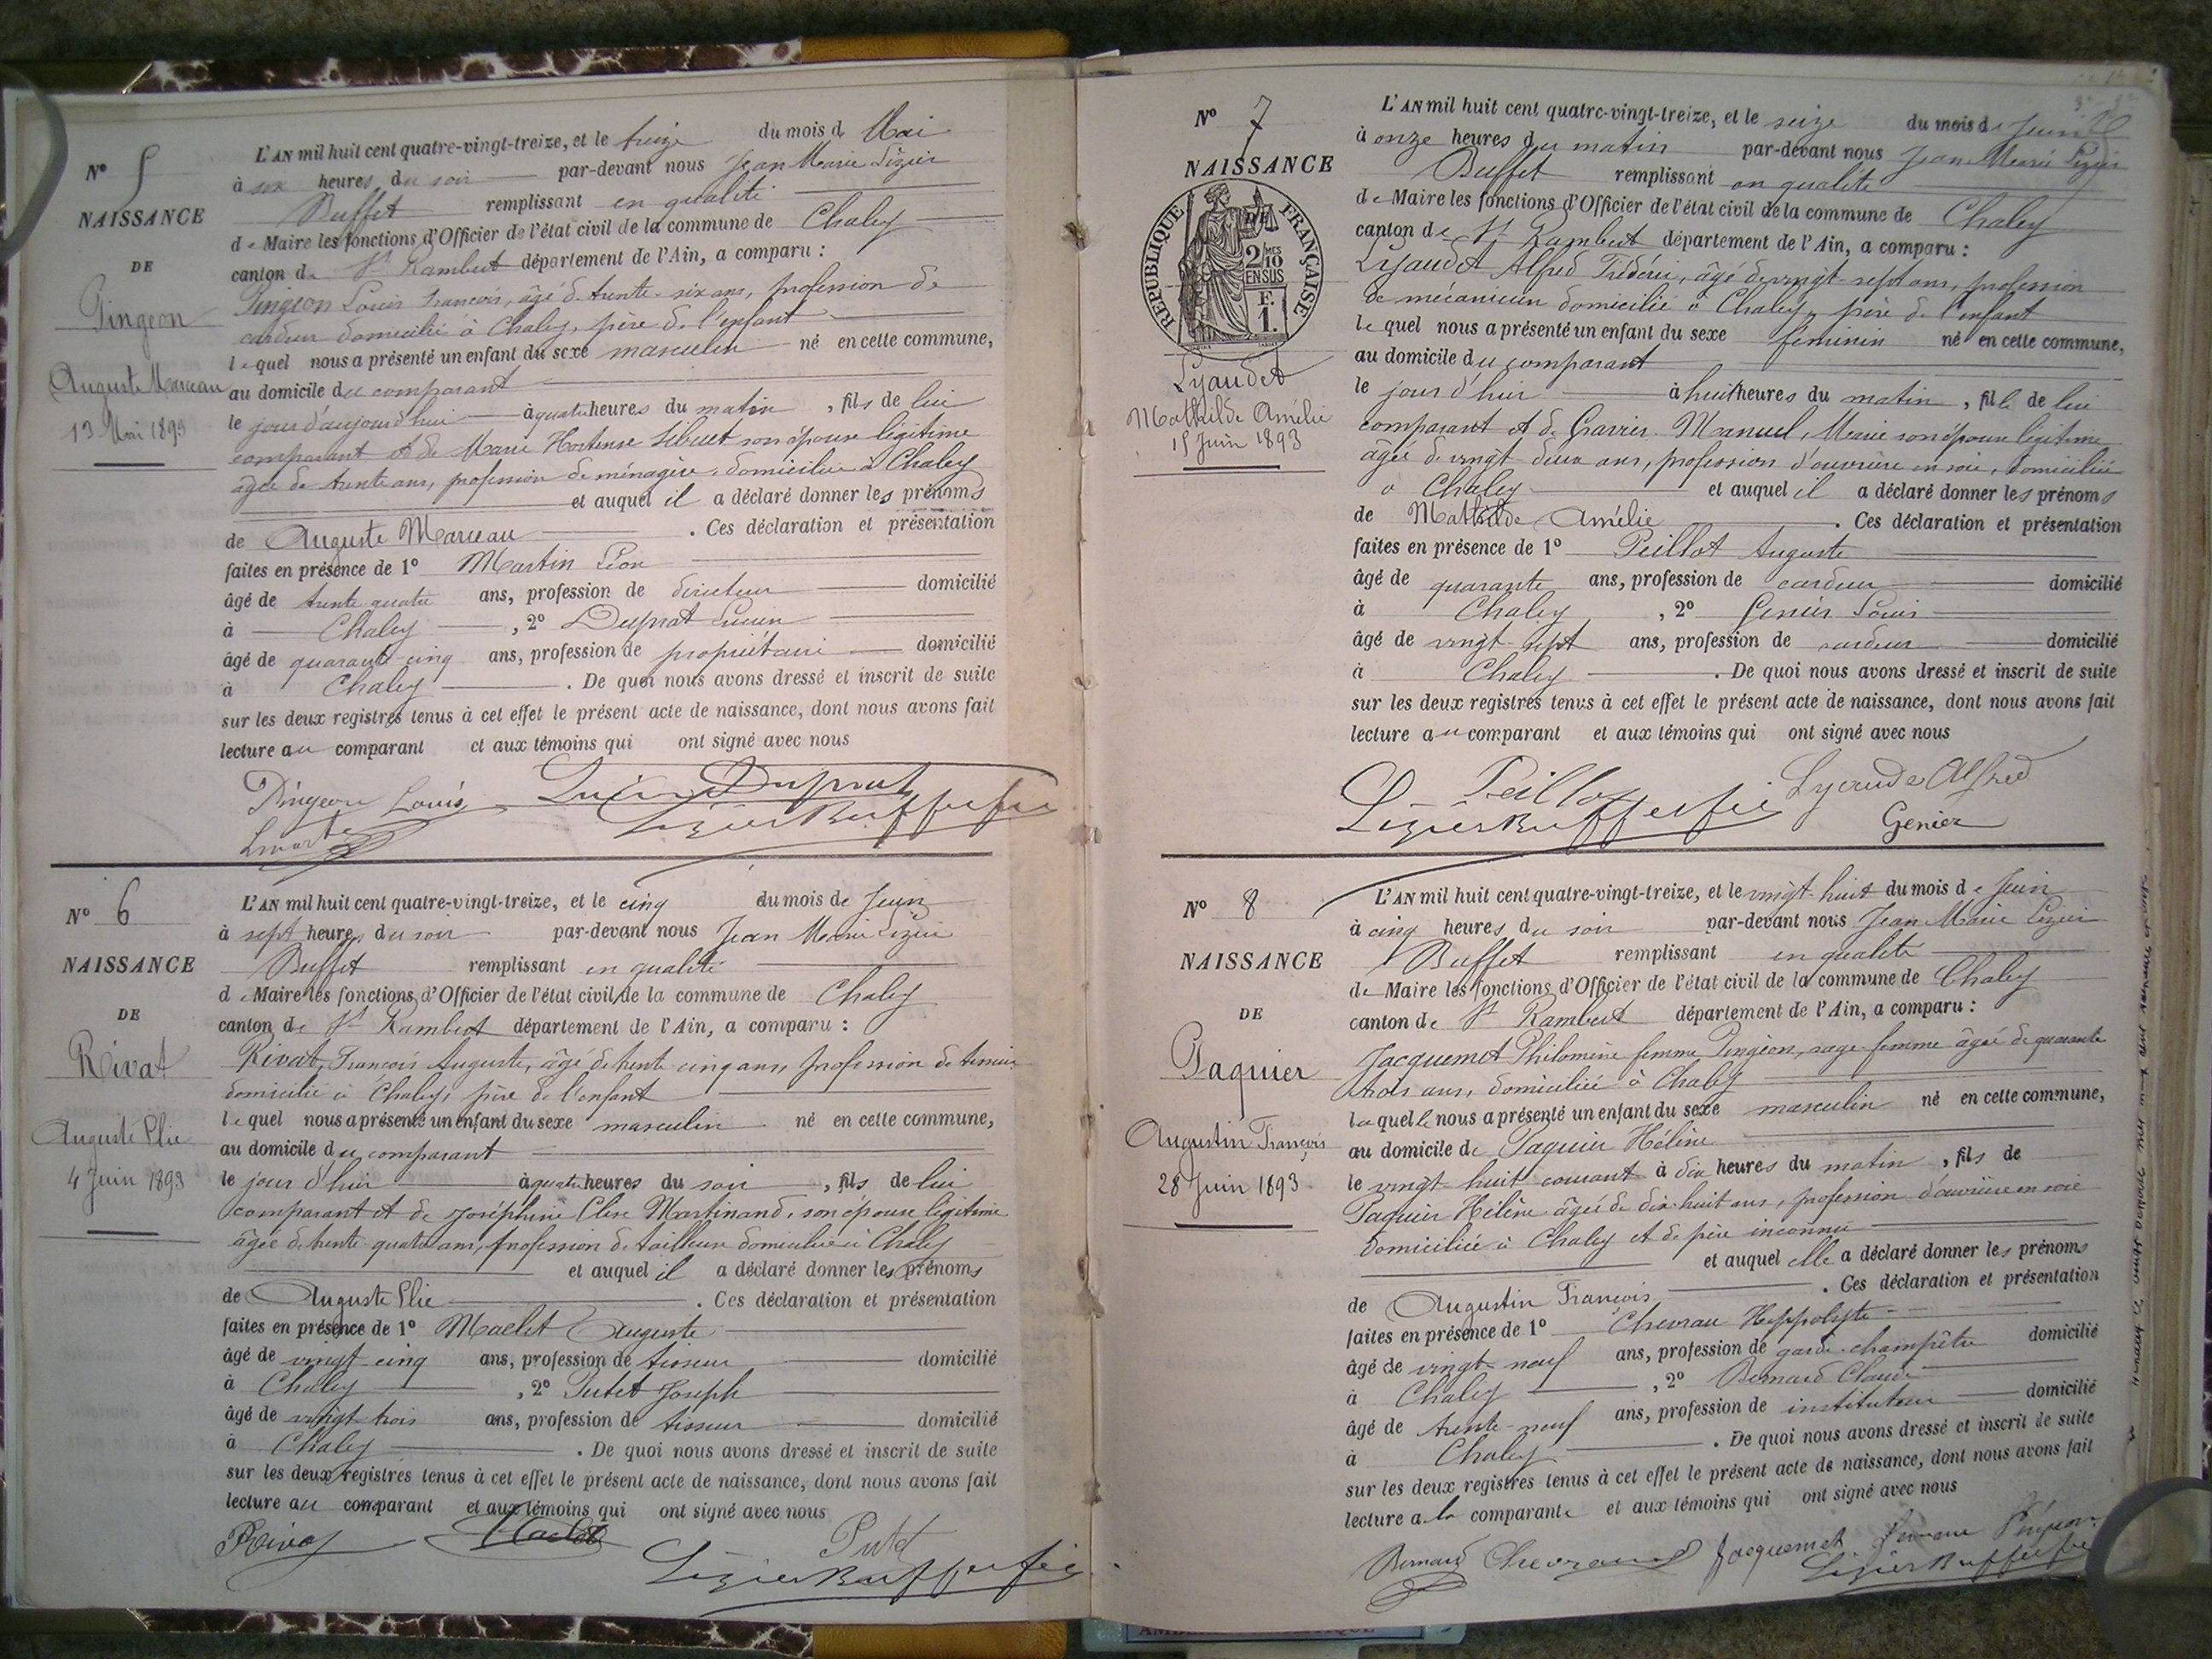 N° 5
NAISSANCE
DE
Pingeon
Auguste Marceau
13 Mai 1893
L'AN mil huit cent quatre-vingt-treize, et le treize du mois d Mai
à six heures du soir par-devant nous Jean Marie Lizier
Buffet remplissant en qualité
de Maire les fonctions d'Officier de l'état civil de la commune de Chaley
canton de St Rambert département de l'Ain, a comparu :
Pingeon Louis François, âgé de trente-six ans, profession de
cardeur domicilié à Chaley, père de l'enfant
lequel nous a présenté un enfant du sexe masculin né en cette commune,
au domicile du comparant
le jour d'aujourd'hui à quatre heures du matin, fils de lui
comparant et de Marie Hortense son épouse légitime
âgée de trente ans, profession de ménagère, domiciliée à Chaley
et auquel il a déclaré donner les prénoms
de Auguste Marceau. Ces déclaration et présentation
faites en présence de 1° Martin Léon
âgé de trente quatre ans, profession de directeur domicilié
à Chaley, 2° Duprat Lucien
âgé de quarante-cinq ans, profession de propriétaire domicilié
à Chaley. De quoi nous avons dressé et inscrit de suite
sur les deux registres tenus à cet effet le présent acte de naissance, dont nous avons fait
lecture au comparant et aux témoins qui ont signé avec nous
Pingeon Louis Lucien Duprat
Lizier Buffet
N° 6
NAISSANCE
DE
Rivat
Auguste Elie
4 Juin 1893
L'AN mil huit cent quatre-vingt-treize, et le cinq du mois de Juin
à sept heures du soir par-devant nous Jean Marie Lizier
Buffet remplissant en qualité
de Maire les fonctions d'Officier de l'état civil de la commune de Chaley
canton de St Rambert département de l'Ain, a comparu :
Rivat, François Auguste, âgé de trente cinq ans, profession de tisseur
domicilié à Chaley, père de l'enfant
lequel nous a présenté un enfant du sexe masculin né en cette commune,
au domicile du comparant
le jour d'hier à quatre heures du soir, fils de lui
comparant et de Joséphine Elise Martinand, son épouse légitime
âgée de trente quatre ans, profession de tailleuse domiciliée à Chaley
et auquel il a déclaré donner les prénoms
de Auguste Elie. Ces déclaration et présentation
faites en présence de 1° Maclet Auguste
âgé de vingt cinq ans, profession de tisseur domicilié
à Chaley, 2° Putet Joseph
âgé de vingt trois ans, profession de tisseur domicilié
à Chaley. De quoi nous avons dressé et inscrit de suite
sur les deux registres tenus à cet effet le présent acte de naissance, dont nous avons fait
lecture au comparant et aux témoins qui ont signé avec nous
Rivat Maclet Putet
Lizier Buffet
N° 7
NAISSANCE
DE
REPUBLIQUE FRANÇAISE
2/10 MES
EN SUS
F.
1.
Lyaudet
Mathilde Amélie
15 Juin 1893
L'AN mil huit cent quatre-vingt-treize, et le seize du mois de Juin
à onze heures du matin par-devant nous Jean Marie Lizier
Buffet remplissant en qualité
de Maire les fonctions d'Officier de l'état civil de la commune de Chaley
canton de St Rambert département de l'Ain, a comparu :
Lyaudet Alfred Frédéric, âgé de vingt-sept ans, profession
de mécanicien domicilié à Chaley, père de l'enfant
lequel nous a présenté un enfant du sexe féminin né en cette commune,
au domicile du comparant
le jour d'hier à huit heures du matin, fille de lui
comparant et de Gravier Manuel, Marie son épouse légitime
âgée de vingt deux ans, profession d'ouvrière en soie, domiciliée
à Chaley et auquel il a déclaré donner les prénoms
de Mathilde Amélie. Ces déclaration et présentation
faites en présence de 1° Peillot Auguste
âgé de quarante ans, profession de cardeur domicilié
à Chaley, 2° Genier Louis
âgé de vingt sept ans, profession de cardeur domicilié
à Chaley. De quoi nous avons dressé et inscrit de suite
sur les deux registres tenus à cet effet le présent acte de naissance, dont nous avons fait
lecture au comparant et aux témoins qui ont signé avec nous
Peillot Lyaudet Alfred
Lizier Buffet Genier
N° 8
NAISSANCE
DE
Paquier
Augustin François
28 Juin 1893
L'AN mil huit cent quatre-vingt-treize, et le vingt-huit du mois de Juin
à cinq heures du soir par-devant nous Jean Marie Lizier
Buffet remplissant en qualité
de Maire les fonctions d'Officier de l'état civil de la commune de Chaley
canton de St Rambert département de l'Ain, a comparu :
Jacquemet Philomène femme Pingeon, sage femme âgée de quarante
trois ans, domiciliée à Chaley
laquelle nous a présenté un enfant du sexe masculin né en cette commune,
au domicile de Paquier Hélène
le vingt-huit courant à dix heures du matin, fils de
Paquier Hélène âgée de dix huit ans, profession d'ouvrière en soie
domiciliée à Chaley et de père inconnu
et auquel elle a déclaré donner les prénoms
de Augustin François. Ces déclaration et présentation
faites en présence de 1° Chevrau Hippolyte
âgé de vingt-neuf ans, profession de garde-champêtre domicilié
à Chaley, 2° Bernard Claude
âgé de trente-neuf ans, profession de instituteur domicilié
à Chaley. De quoi nous avons dressé et inscrit de suite
sur les deux registres tenus à cet effet le présent acte de naissance, dont nous avons fait
lecture a la comparante et aux témoins qui ont signé avec nous
Bernard Jacquemet femme Pingeon
Lizier Buffet